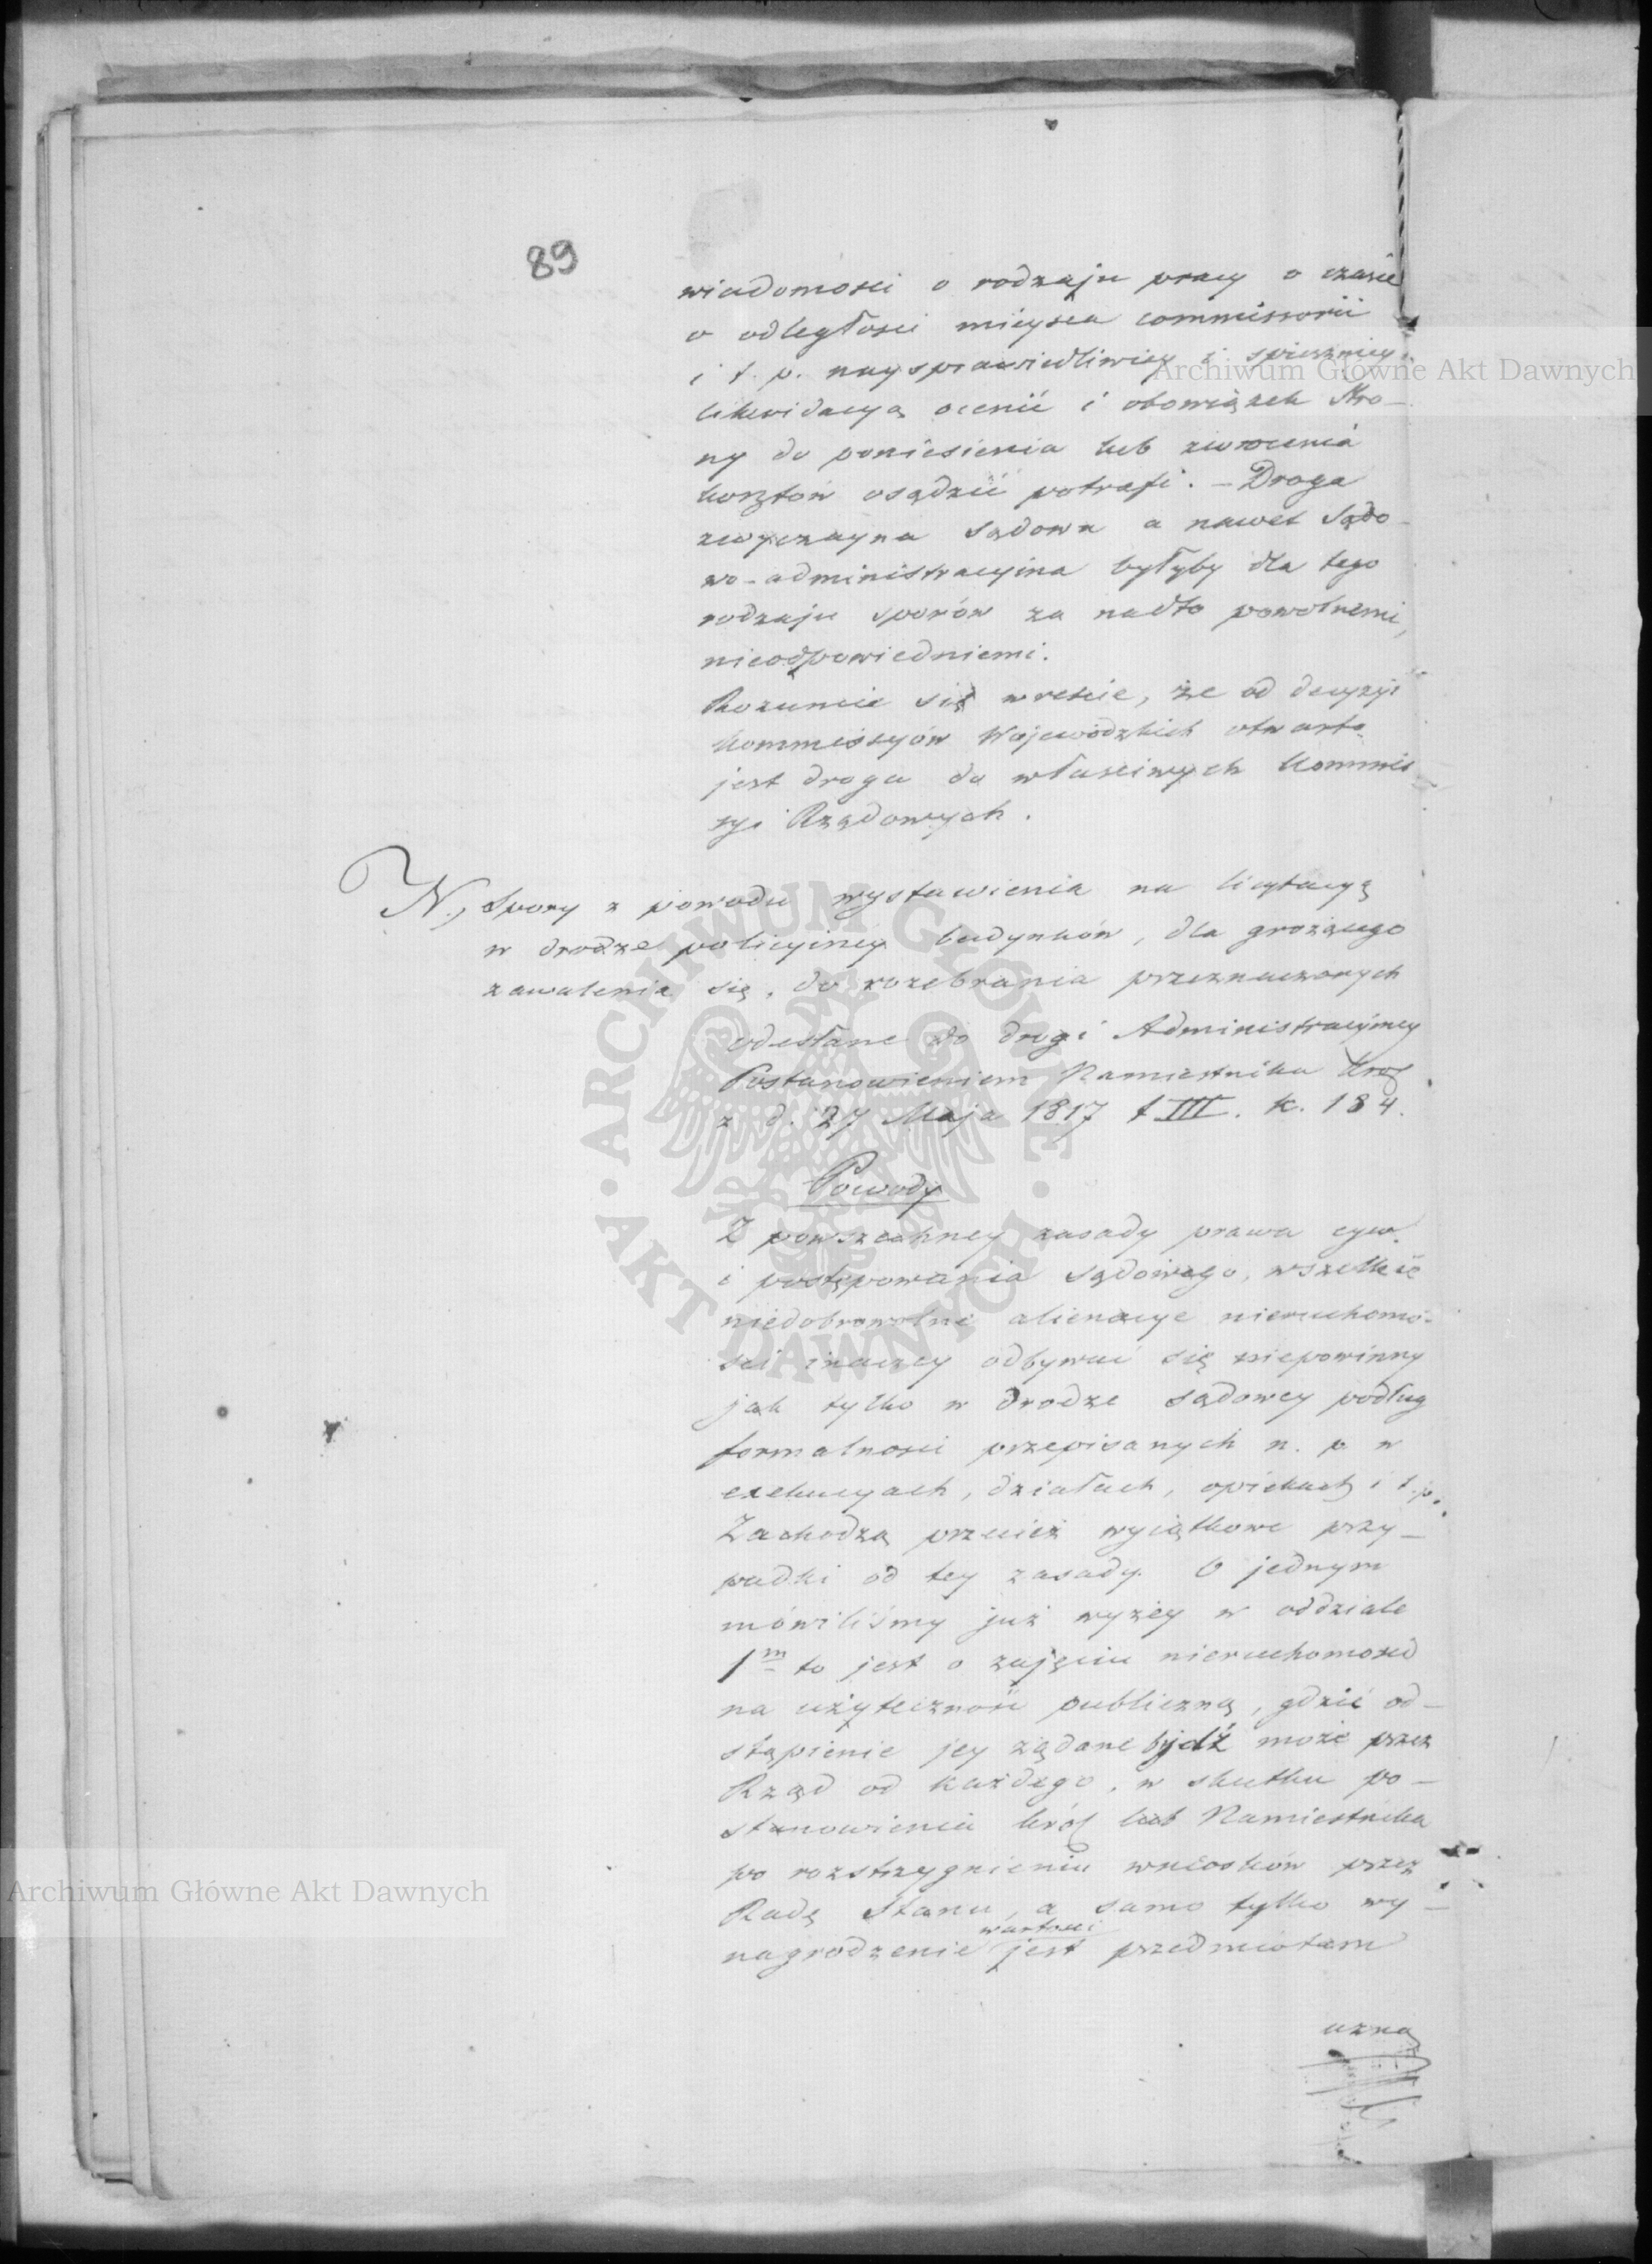 89
wiadomości o rodzaju pracy o czasie
o odległości mieysca commissorii
i t. p. naysprawiedliwiey i spieszniey
likwidacyą ocenić i obowiązek stro-
ny do poniesienia lub zwrócenia
kosztów osądzić potrafi. – Droga
zwyczayna sądowa a nawet sądo-
wo-administracyina byłyby dla tego
rodzaju sporów za nadto powolnemi,
nieodpowiedniemi.
Rozumie się wreście, że od decyzyi
Kommissyów Wojewódzkich otwarta
jest droga do właściwych Kommis-
syi Rządowych.
N., Spory z powodu wystawienia na licytacyą
w drodze policyiney budynków, dla grożącego
zawalenia się, do rozebrania przeznaczonych
odesłane do drogi Administracyiney
Postanowieniem Namiestnika Król
z d. 27 Maja 1817 t III. k. 184.
Powody
Z powszechney zasady prawa cyw.
i postępowania sądowego, wszelkie
niedobrowolne alienacye nieruchomo-
ści inaczey odbywać się niepowinny
jak tylko w drodze sądowey podług
formalności przepisanych n. p w
exekucyach, działach, opiekach i t.p.
Zachodzą przecież wyiątkowe przy-
padki od tey zasady. O jednym
mówiliśmy już wyżey w oddziale
1m to jest o zajęciu nieruchomości
na użyteczność publiczną, gdzie od-
stąpienie jey żądane bydź może przez
Rząd od każdego, w skutku po-
stanowienia król lub Namiestnika
po rozstrzygnieniu wniosków przez
Radę Stanu, a samo tylko wy-
nagrodzenie wartości jest przedmiotem
uzna
Archiwum Główne Akt Dawnych
ARCHIWUM GŁÓWNE AKT DAWNYCH
Archiwum Główne Akt Dawnych